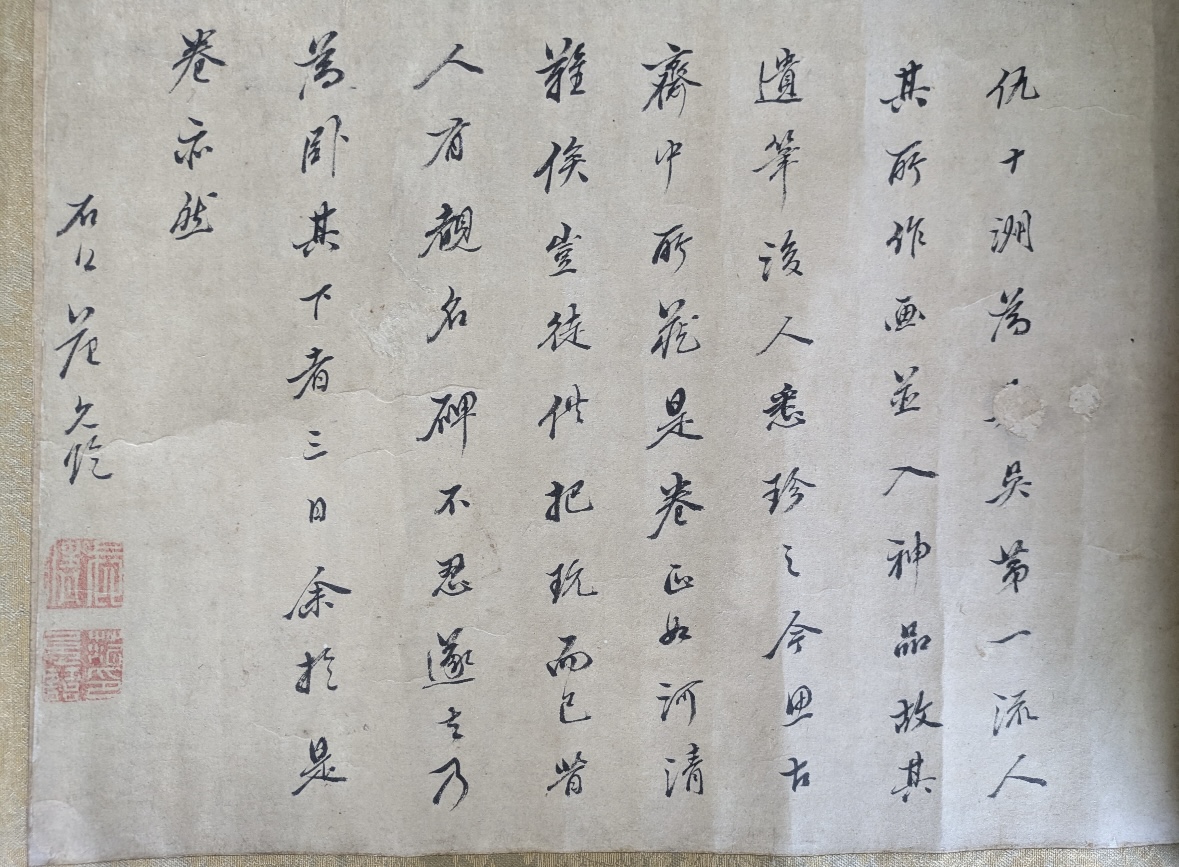 仇十洲為吳第一流人
其所作画並入神品故其
遺筆後人悉珍之今思古
齋中所藏是卷正如河清
難俟豈徒供把玩而已昔
人有觀名碑不忍遂去乃
為卧其下者三日余於是
卷亦然
石口范允臨